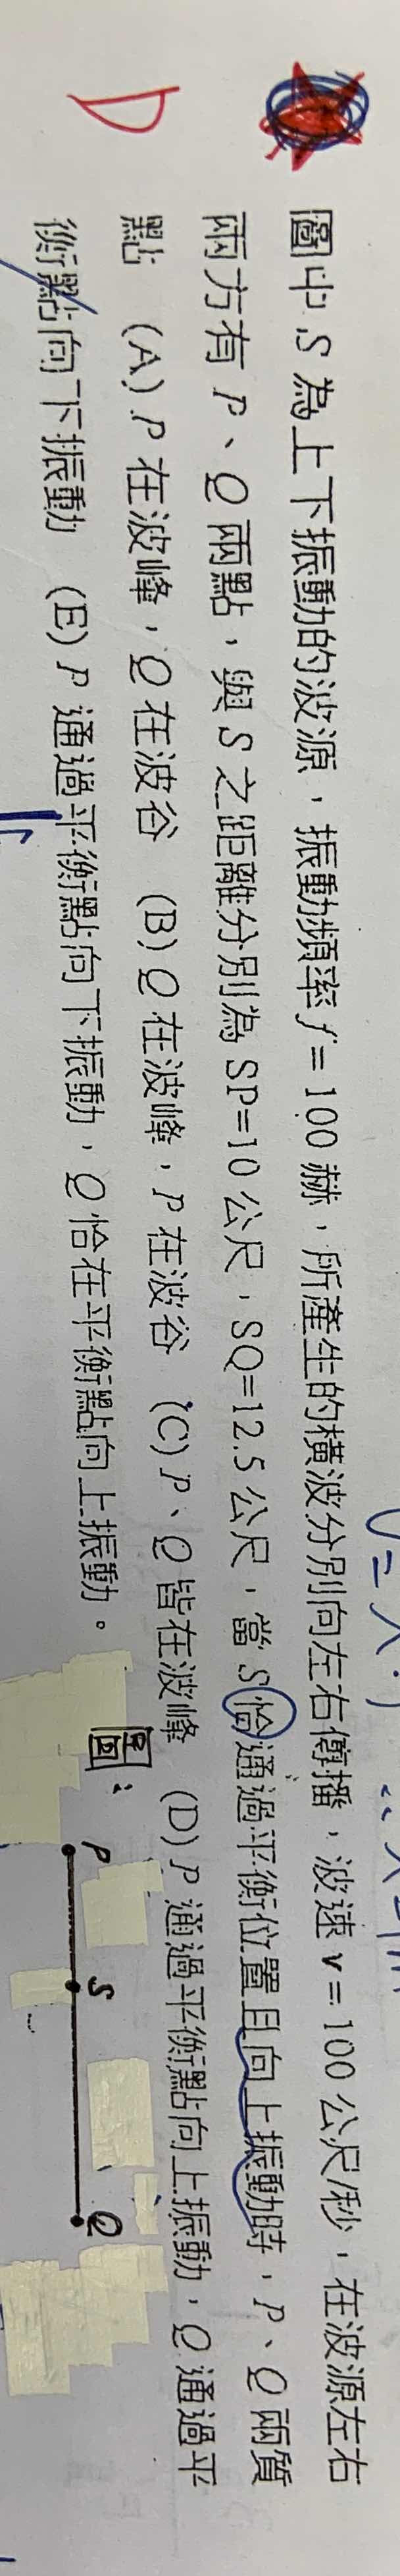 D
圖中 S 為上下振動的波源，振動頻率 f = 100 赫，所產生的橫波分別向左右傳播，波速 v = 100 公尺/秒，在波源左右
兩方有 P、Q 兩點，與 S 之距離分別為 SP=10 公尺，SQ=12.5 公尺，當 S 恰通過平衡位置且向上振動時，P、Q 兩質
點 (A) P 在波峰，Q 在波谷 (B) Q 在波峰，P 在波谷 (C) P、Q 皆在波峰 (D) P 通過平衡點向上振動，Q 通過平
衡點向下振動 (E) P 通過平衡點向下振動，Q 恰在平衡點向上振動。
圖：
P S Q